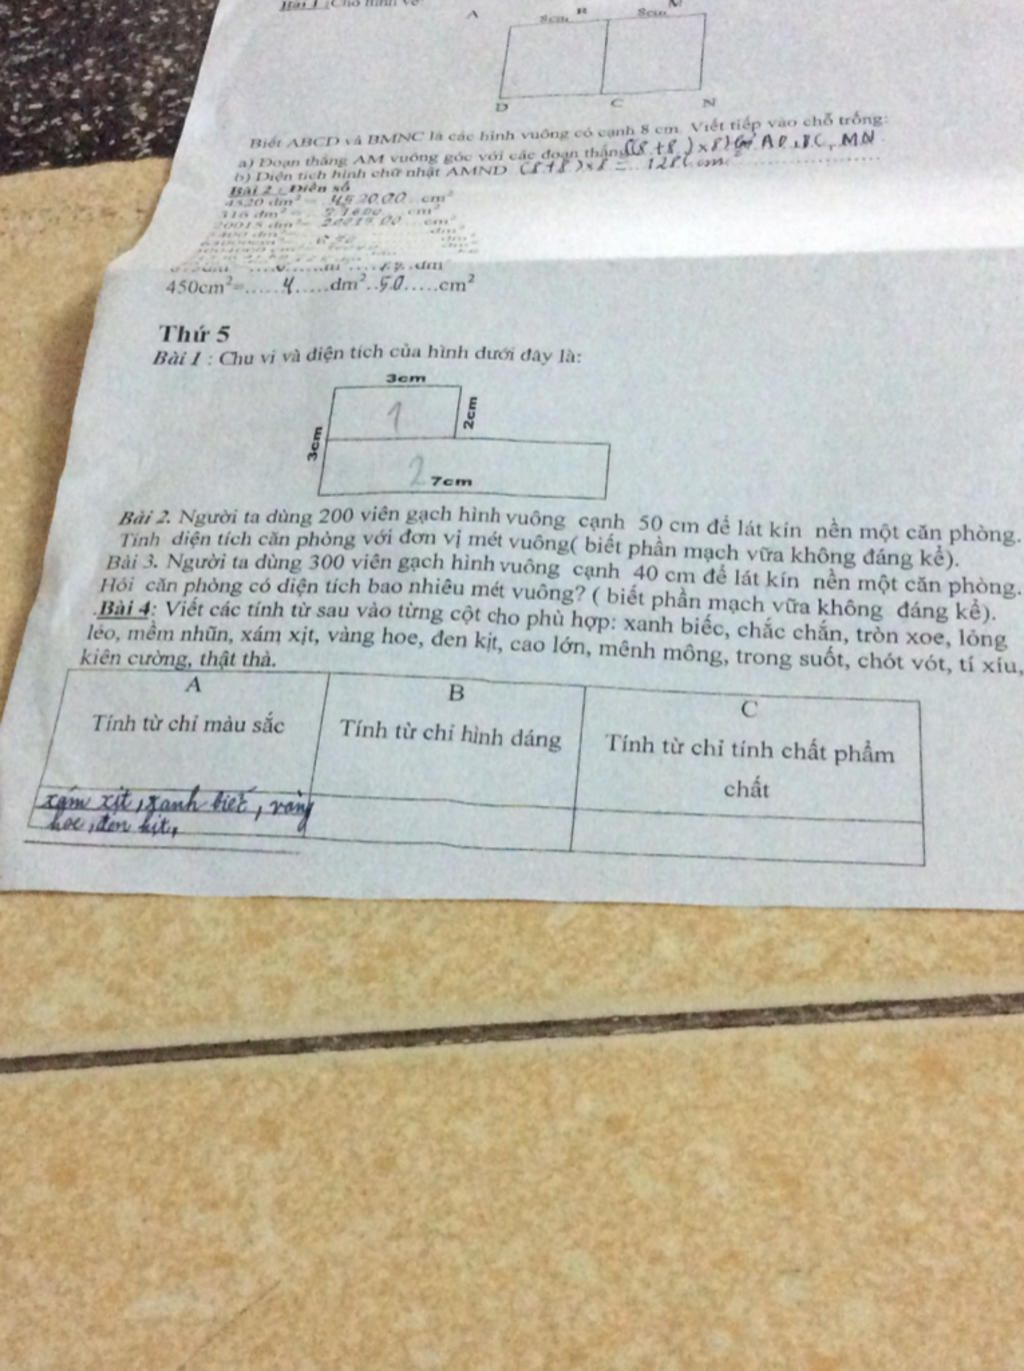 Bài 1 : Cho hình vẽ
A 8cm B 8cm M
D C N
Biết ABCD và BMNC là các hình vuông có cạnh 8 cm. Viết tiếp vào chỗ trống:
a) Đoạn thẳng AM vuông góc với các đoạn thẳng AD, BC, MN
b) Diện tích hình chữ nhật AMND (8+8)x8 = 128
Bài 2 : Điền số
4520 dm² = 452000 cm²
316 dm² = 31600 cm²
20015 dm² = cm²
450cm²=.....4.....dm²..50.....cm²
Thứ 5
Bài 1 : Chu vi và diện tích của hình dưới đây là:
3cm
1
2cm
3cm
2
7cm
Bài 2. Người ta dùng 200 viên gạch hình vuông cạnh 50 cm để lát kín nền một căn phòng.
Tính diện tích căn phòng với đơn vị mét vuông( biết phần mạch vữa không đáng kể).
Bài 3. Người ta dùng 300 viên gạch hình vuông cạnh 40 cm để lát kín nền một căn phòng.
Hỏi căn phòng có diện tích bao nhiêu mét vuông? ( biết phần mạch vữa không đáng kể).
Bài 4: Viết các tính từ sau vào từng cột cho phù hợp: xanh biếc, chắc chắn, tròn xoe, lỏng
lẻo, mềm nhũn, xám xịt, vàng hoe, đen kịt, cao lớn, mênh mông, trong suốt, chót vót, tí xíu,
kiên cường, thật thà.
A B C
Tính từ chỉ màu sắc Tính từ chỉ hình dáng Tính từ chỉ tính chất phẩm
chất
xám xịt, xanh biếc, vàng
hoe, đen kịt,